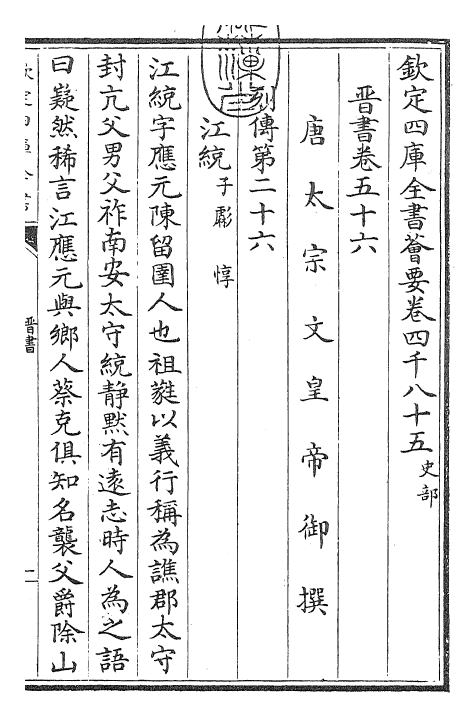 欽定四庫全書薈要卷四千八十五史部
晉書卷五十六
唐太宗文皇帝御撰
列傳第二十六
江統子虨惇
江統字應元陳留圉人也祖蕤以義行稱為譙郡太守
封亢父男父祚南安太守統靜默有遠志時人為之語
曰嶷然稀言江應元與鄉人蔡克俱知名襲父爵除山
晉書